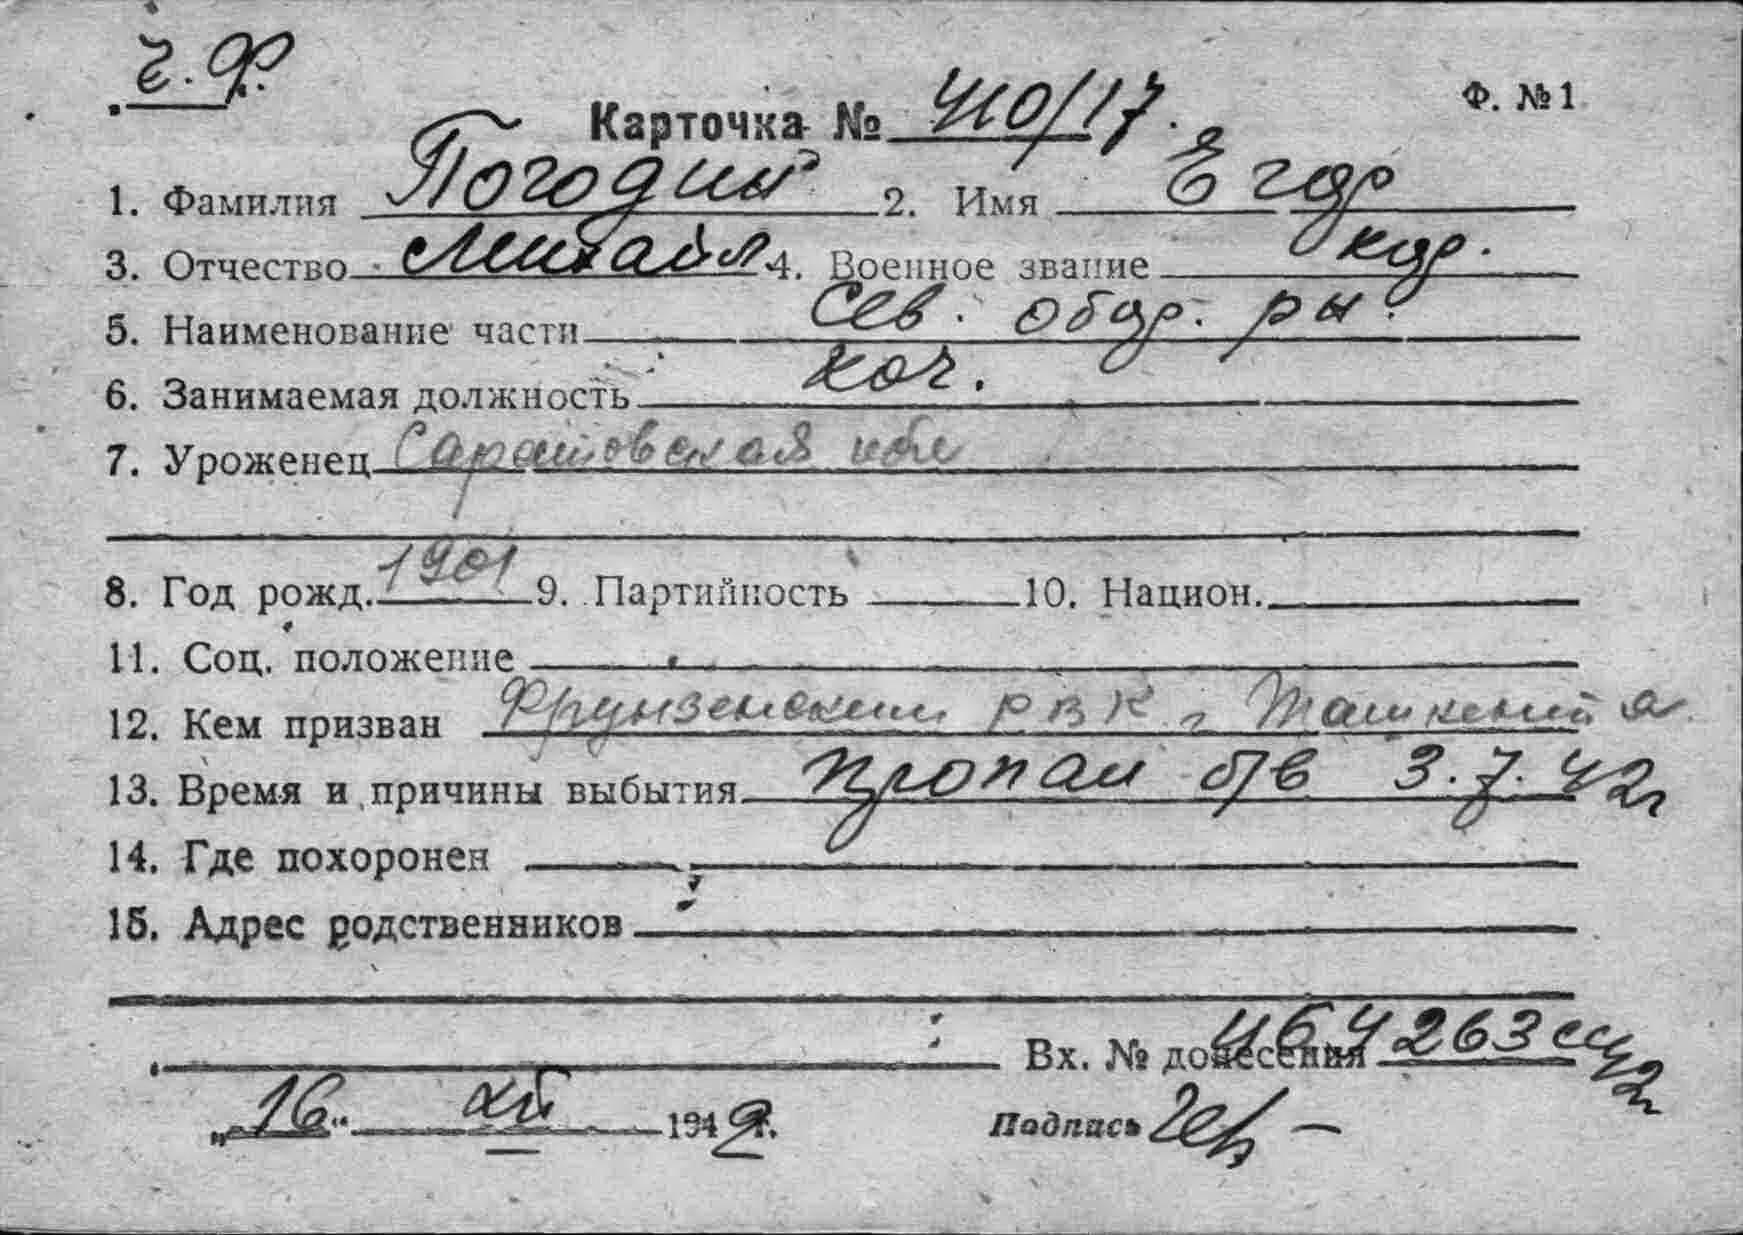 Ч.Ф.
Ф. №1
Карточка № 410/17.
1. Фамилия Погодин 2. Имя Егор
3. Отчество Михайл 4. Военное звание кр.
5. Наименование части Сев. обор. р-н.
6. Занимаемая должность коч.
7. Уроженец Саратовская обл
8. Год рожд. 1901 9. Партийность 10. Национ.
11. Соц. положение
12. Кем призван Фрунзенским РВК г Ташкента
13. Время и причины выбытия пропал б/в 3.7.42г
14. Где похоронен
15. Адрес родственников
Вх. № донесения
„16“ XII 1942г.
Подпись